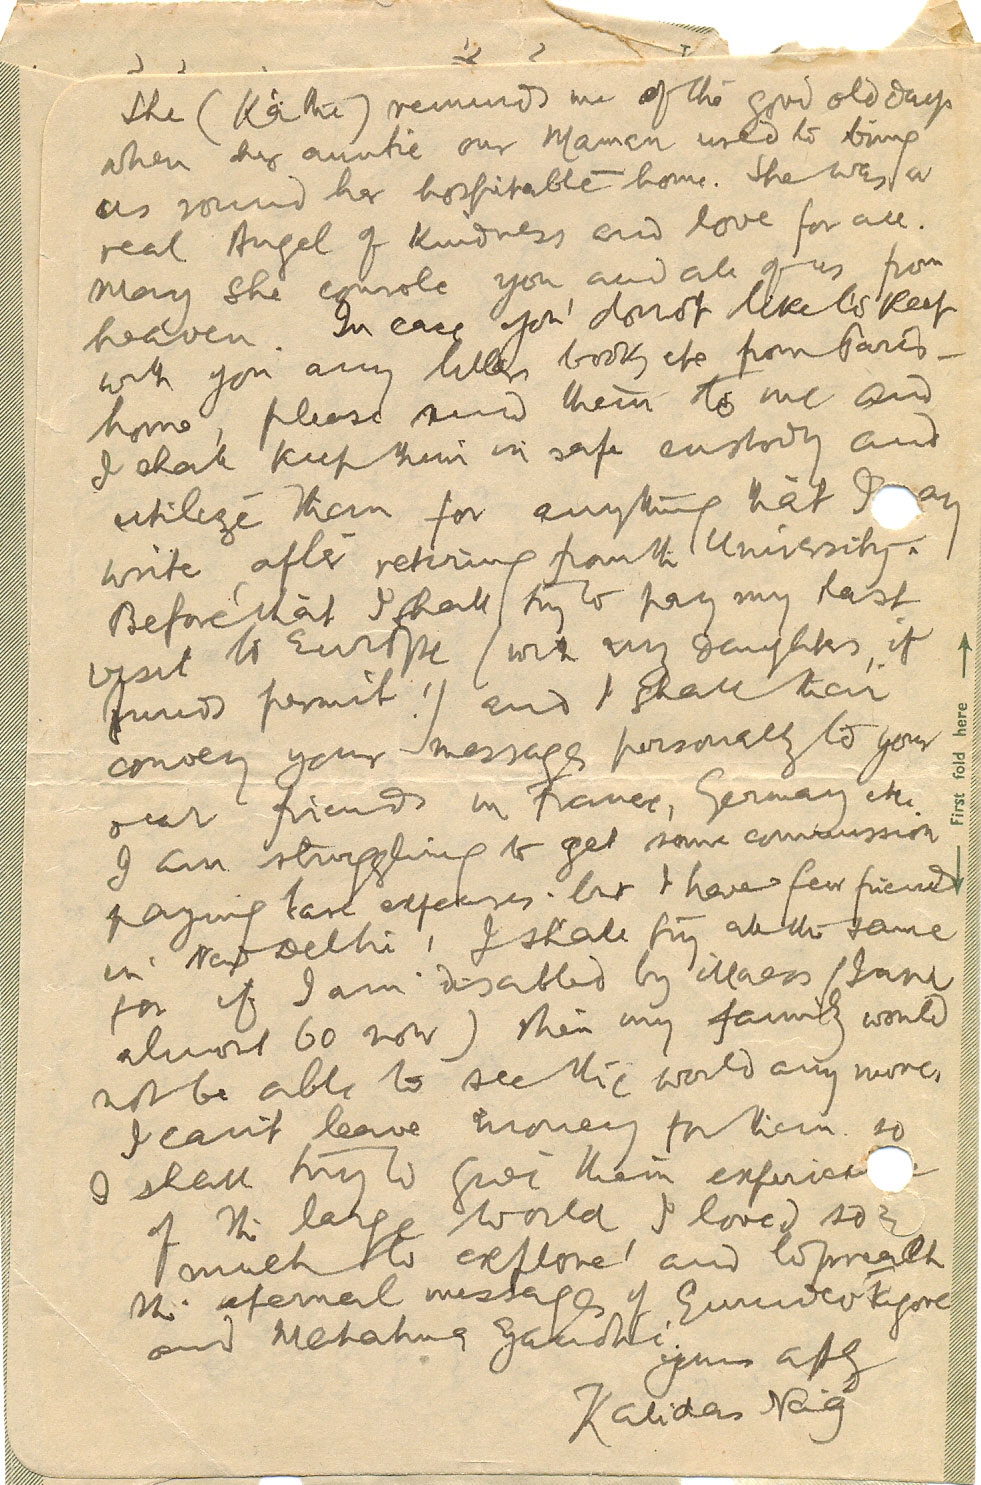 She (Käthe) reminds me of the good old days
when her auntie our Maman used to bring
us round her hospitable home. She was a
real Angel of kindness and love for all.
May she console you and all of us from
heaven. In case you donot like to keep
with you any letters books etc from Paris-
home, please send them to me and
I shall keep them in safe custody and
utilize them for anything that I ay
write after retiring from the University.
Before that I shall try to pay my last
visit to Europe (with my daughters, if
funds permit!) and I shall then
convey your message personally to your
dear friends in France, Germany etc.
I am struggling to get some commission
paying expenses. but I have few friends
in New Delhi! I shall try all the same
for if I am disabled by illness (I am
almost 60 now) then my family would
not be able to see the world any more.
I can't leave money for them so
I shall try to give them experien
of the large world I loved so
much to explore! and to preach
the eternal messages of Gurudev Tagore
and Mahatma Gandhi.
yours affly
Kalidas Nag
First fold here